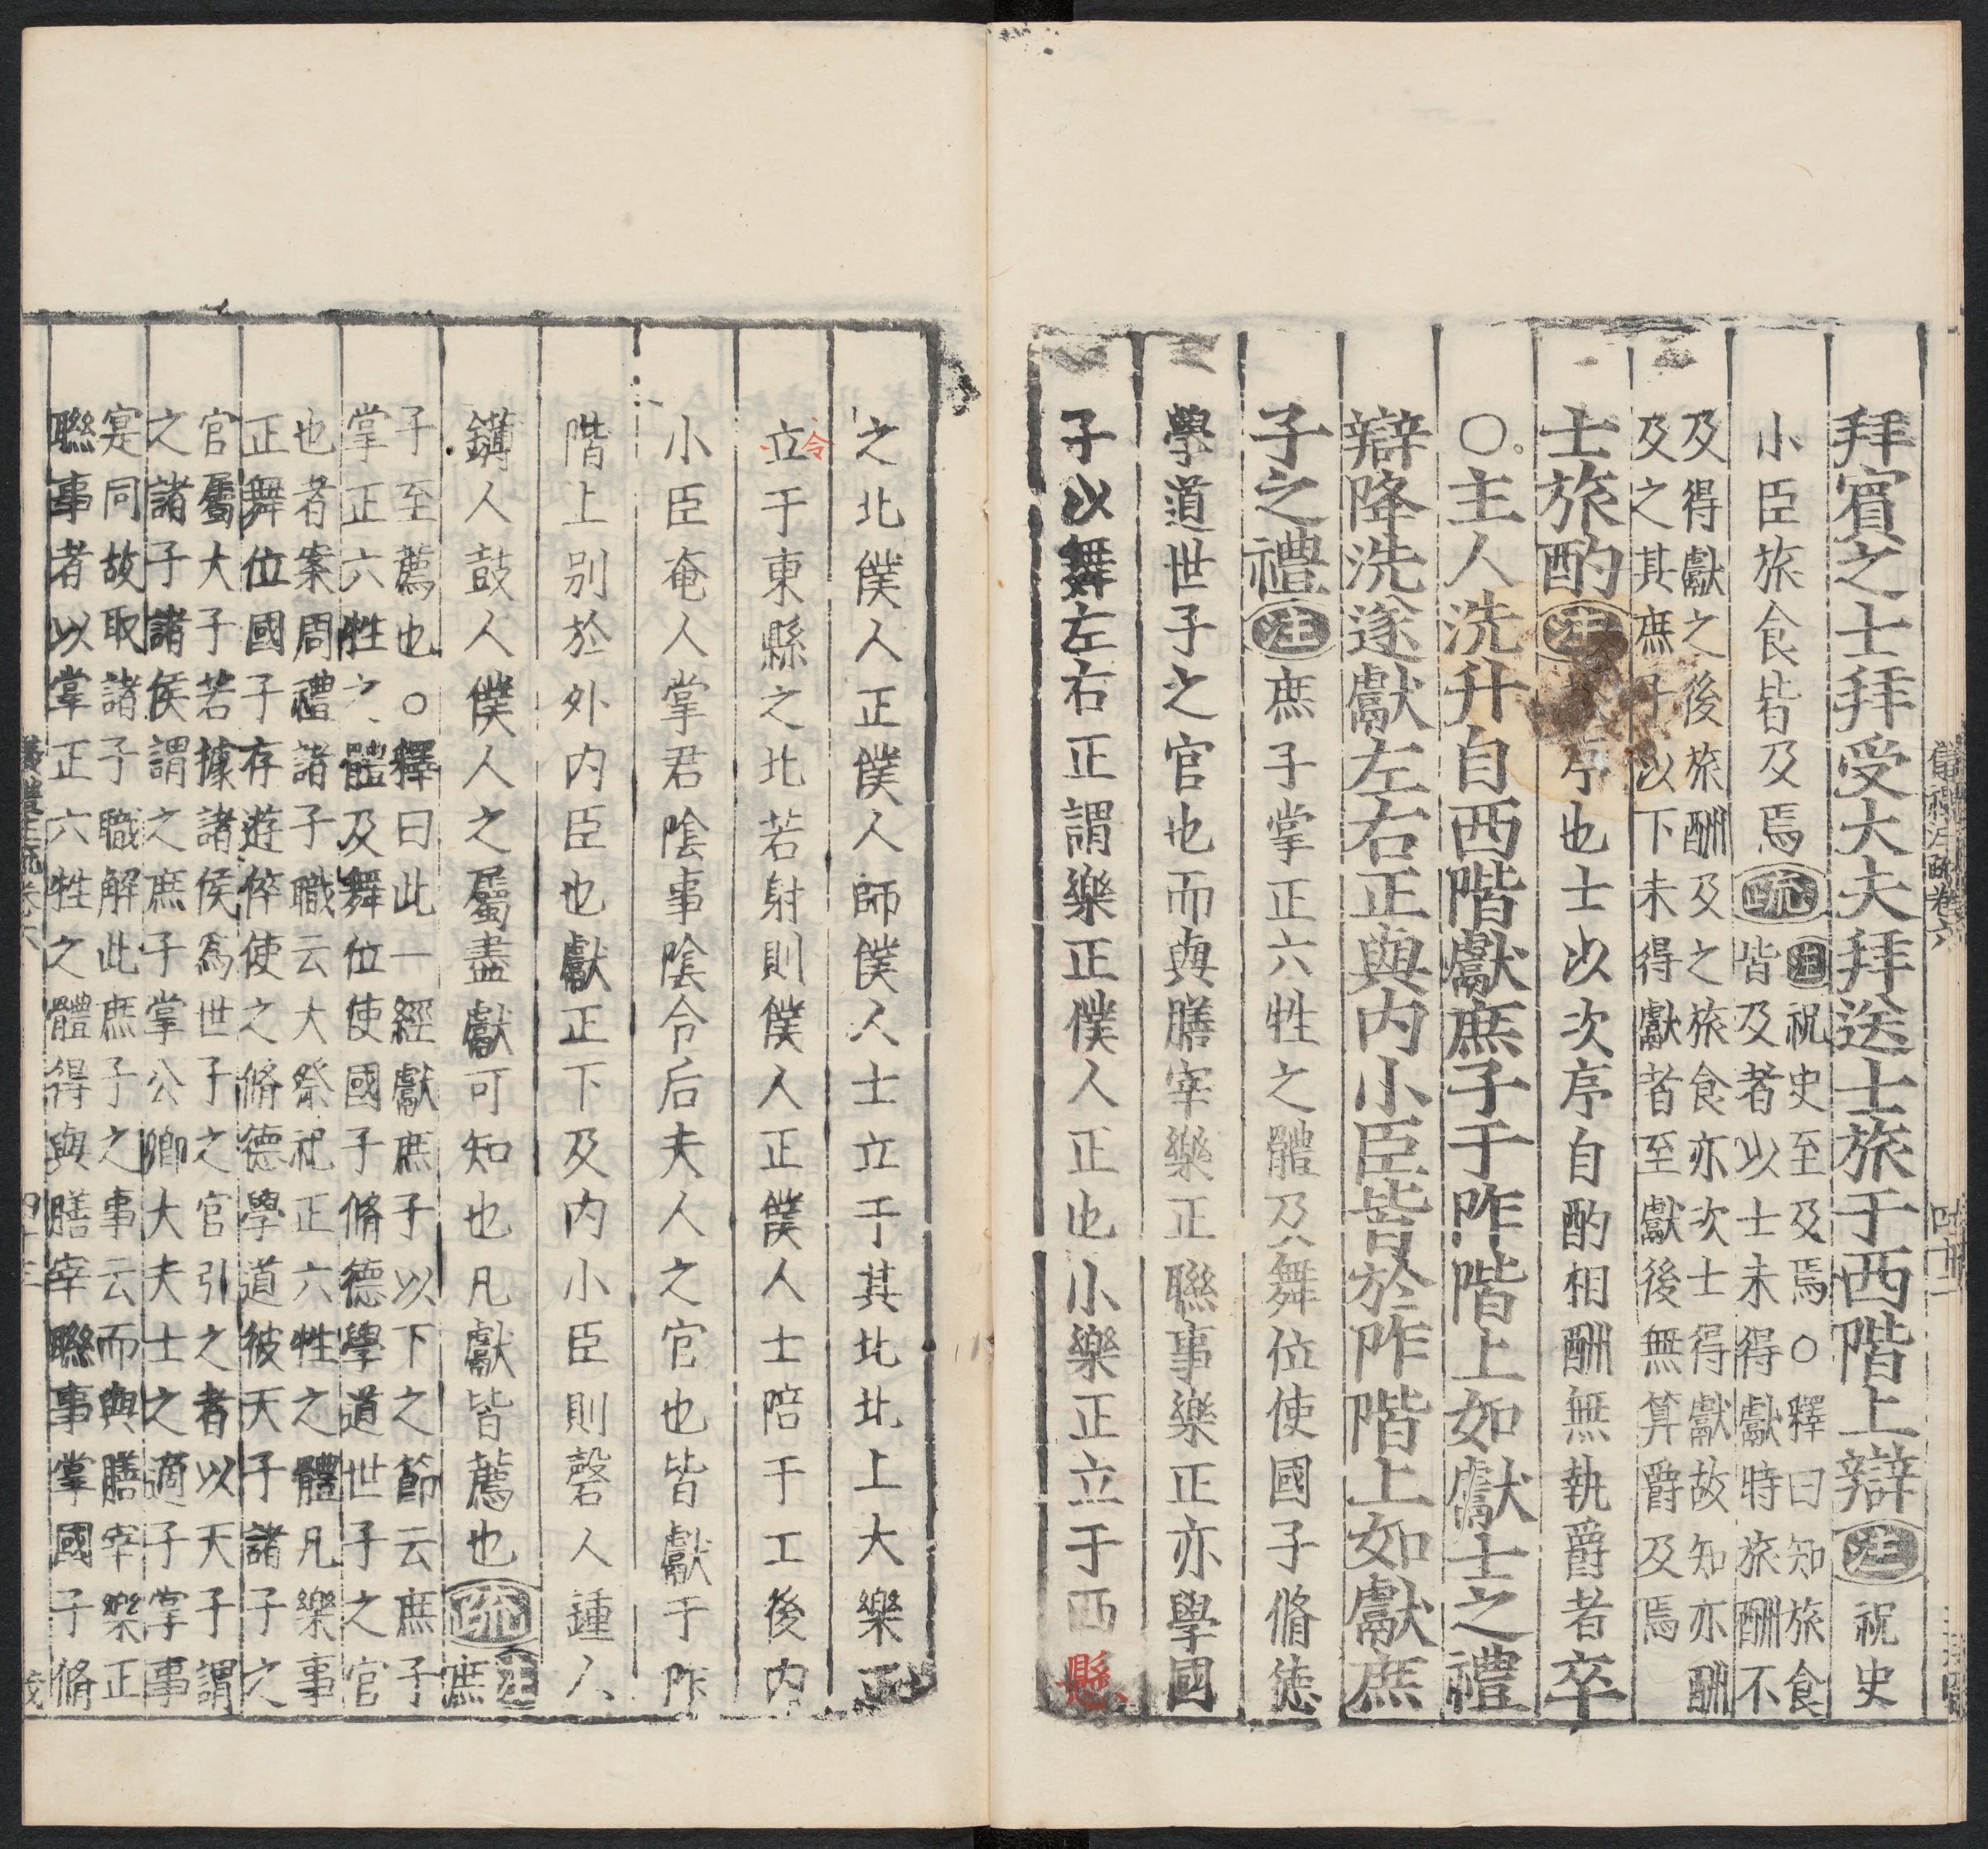 拜賔之士拜受大夫拜送士旅于西階上辯注祝史
小臣旅食皆及焉疏注祝史至及焉○釋曰知旅食
皆及者以士未得獻時旅酬不
及得獻之後旅酬及之旅食亦次士得獻故知亦酬
及之其庶子以下未得獻者至獻後無算爵及焉
士旅酌注序也士以次序自酌相酬無執爵者卒
○主人洗升自西階獻庶子于阼階上如獻士之禮
辯降洗遂獻左右正與内小臣皆於阼階上如獻庶
子之禮注庶子掌正六牲之體及舞位使國子脩德
學道世子之官也而與膳宰樂正聯事樂正亦學國
子以舞左右正謂樂正僕人正也小樂正立于西懸
之北僕人正僕人師僕人士立于其北北上大樂正
立于東縣之北若射則僕人正僕人士陪于工後内
令
小臣奄人掌君陰事陰令后夫人之官也皆獻于阼
階上别於外内臣也獻正下及内小臣則磬人鍾人
鎛人鼓人僕人之屬盡獻可知也凡獻皆薦也疏注庶
子至薦也○釋曰此一經獻庶子以下之節云庶子
掌正六牲之體及舞位使國子脩德學道世子之官
也者案周禮諸子職云大祭祀正六牲之體凡樂事
正舞位國子存遊倅使之脩德學道彼天子諸子之
官屬大子若據諸侯爲世子之官引之者以天子謂
之諸子諸侯謂之庶子掌公卿大夫士之適子掌事
寔同故取諸子職解此庶子之事云而與膳宰樂正
聯事者以掌正六牲之體得與膳宰聯事掌國子脩
儀禮注疏卷六
儀禮注疏卷六
四十三